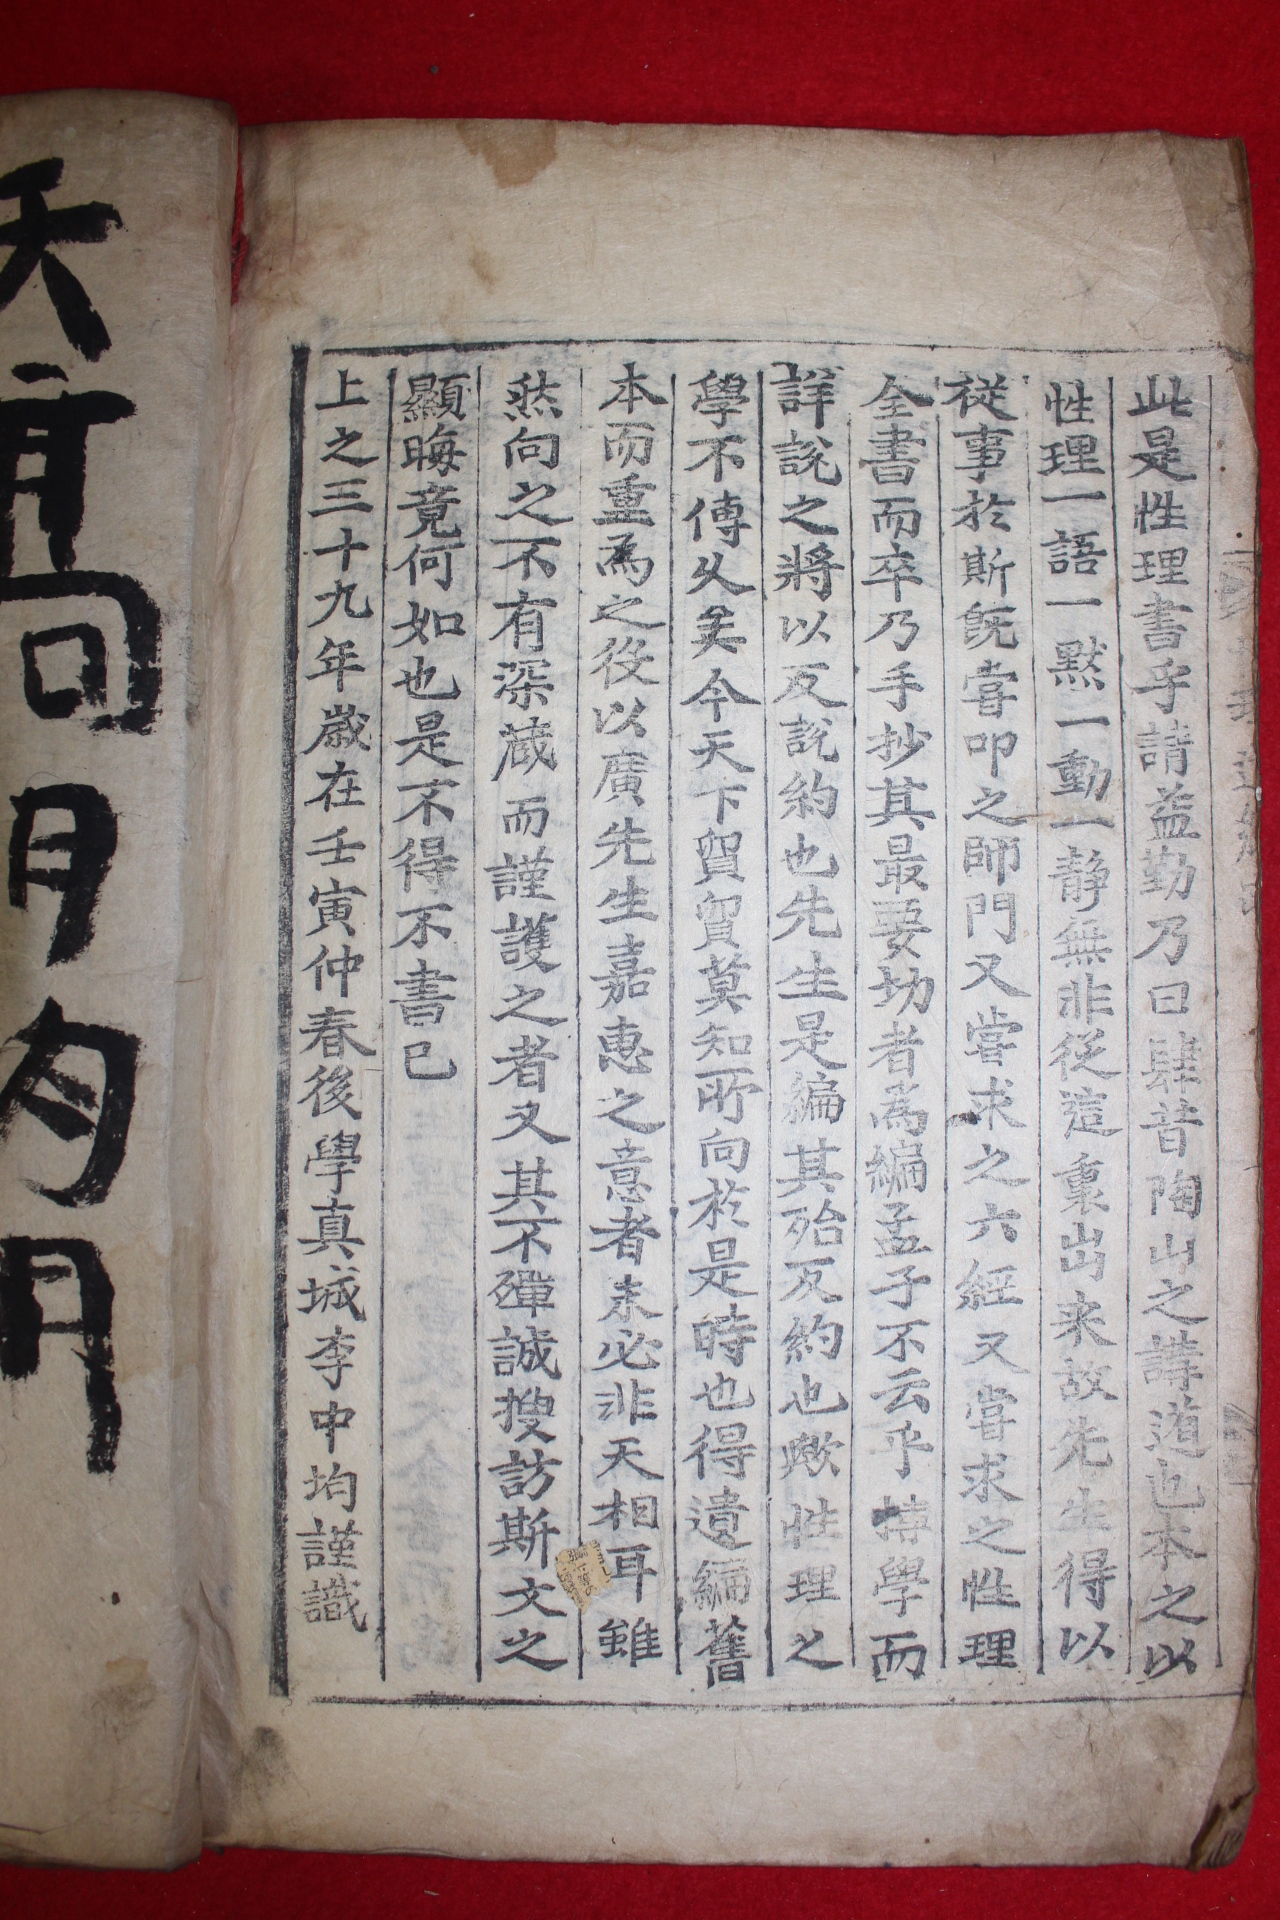 此是性理書乎請益勤乃曰肆昔陶山之講道也本之以
性理一語一默一動一静無非從這裏出来故先生得以
従事於斯旣嘗叩之師門又嘗求之六經又嘗求之性理
全書而卒乃手抄其最要切者為編孟子不云乎博學而
詳說之將以反說約也先生是編其殆反約也歟性理之
學不傳久矣今天下貿貿莫知所向於是時也得遺編舊
本而重為之役以廣先生嘉惠之意者未必非天相耳雖
然向之不有深蔵而謹護之者又其不殫誠搜訪斯文之
顯晦竟何如也是不得不書已
上之三十九年歲在壬寅仲春後學真城李中均謹識